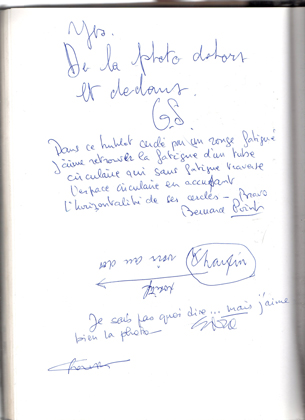 De la photo dehors
et dedans.
G.S.
Dans ce cerclé par un rouge fatigué
j'aime retrouver la fatigue d'un tube
circulaire qui sans fatigue traverse
l'espace circulaire en accusant
l'horizontalité de ses cercles - Bravo
Bernard
voir au dos
Je sais pas quoi dire... mais j'aime
bien la photo